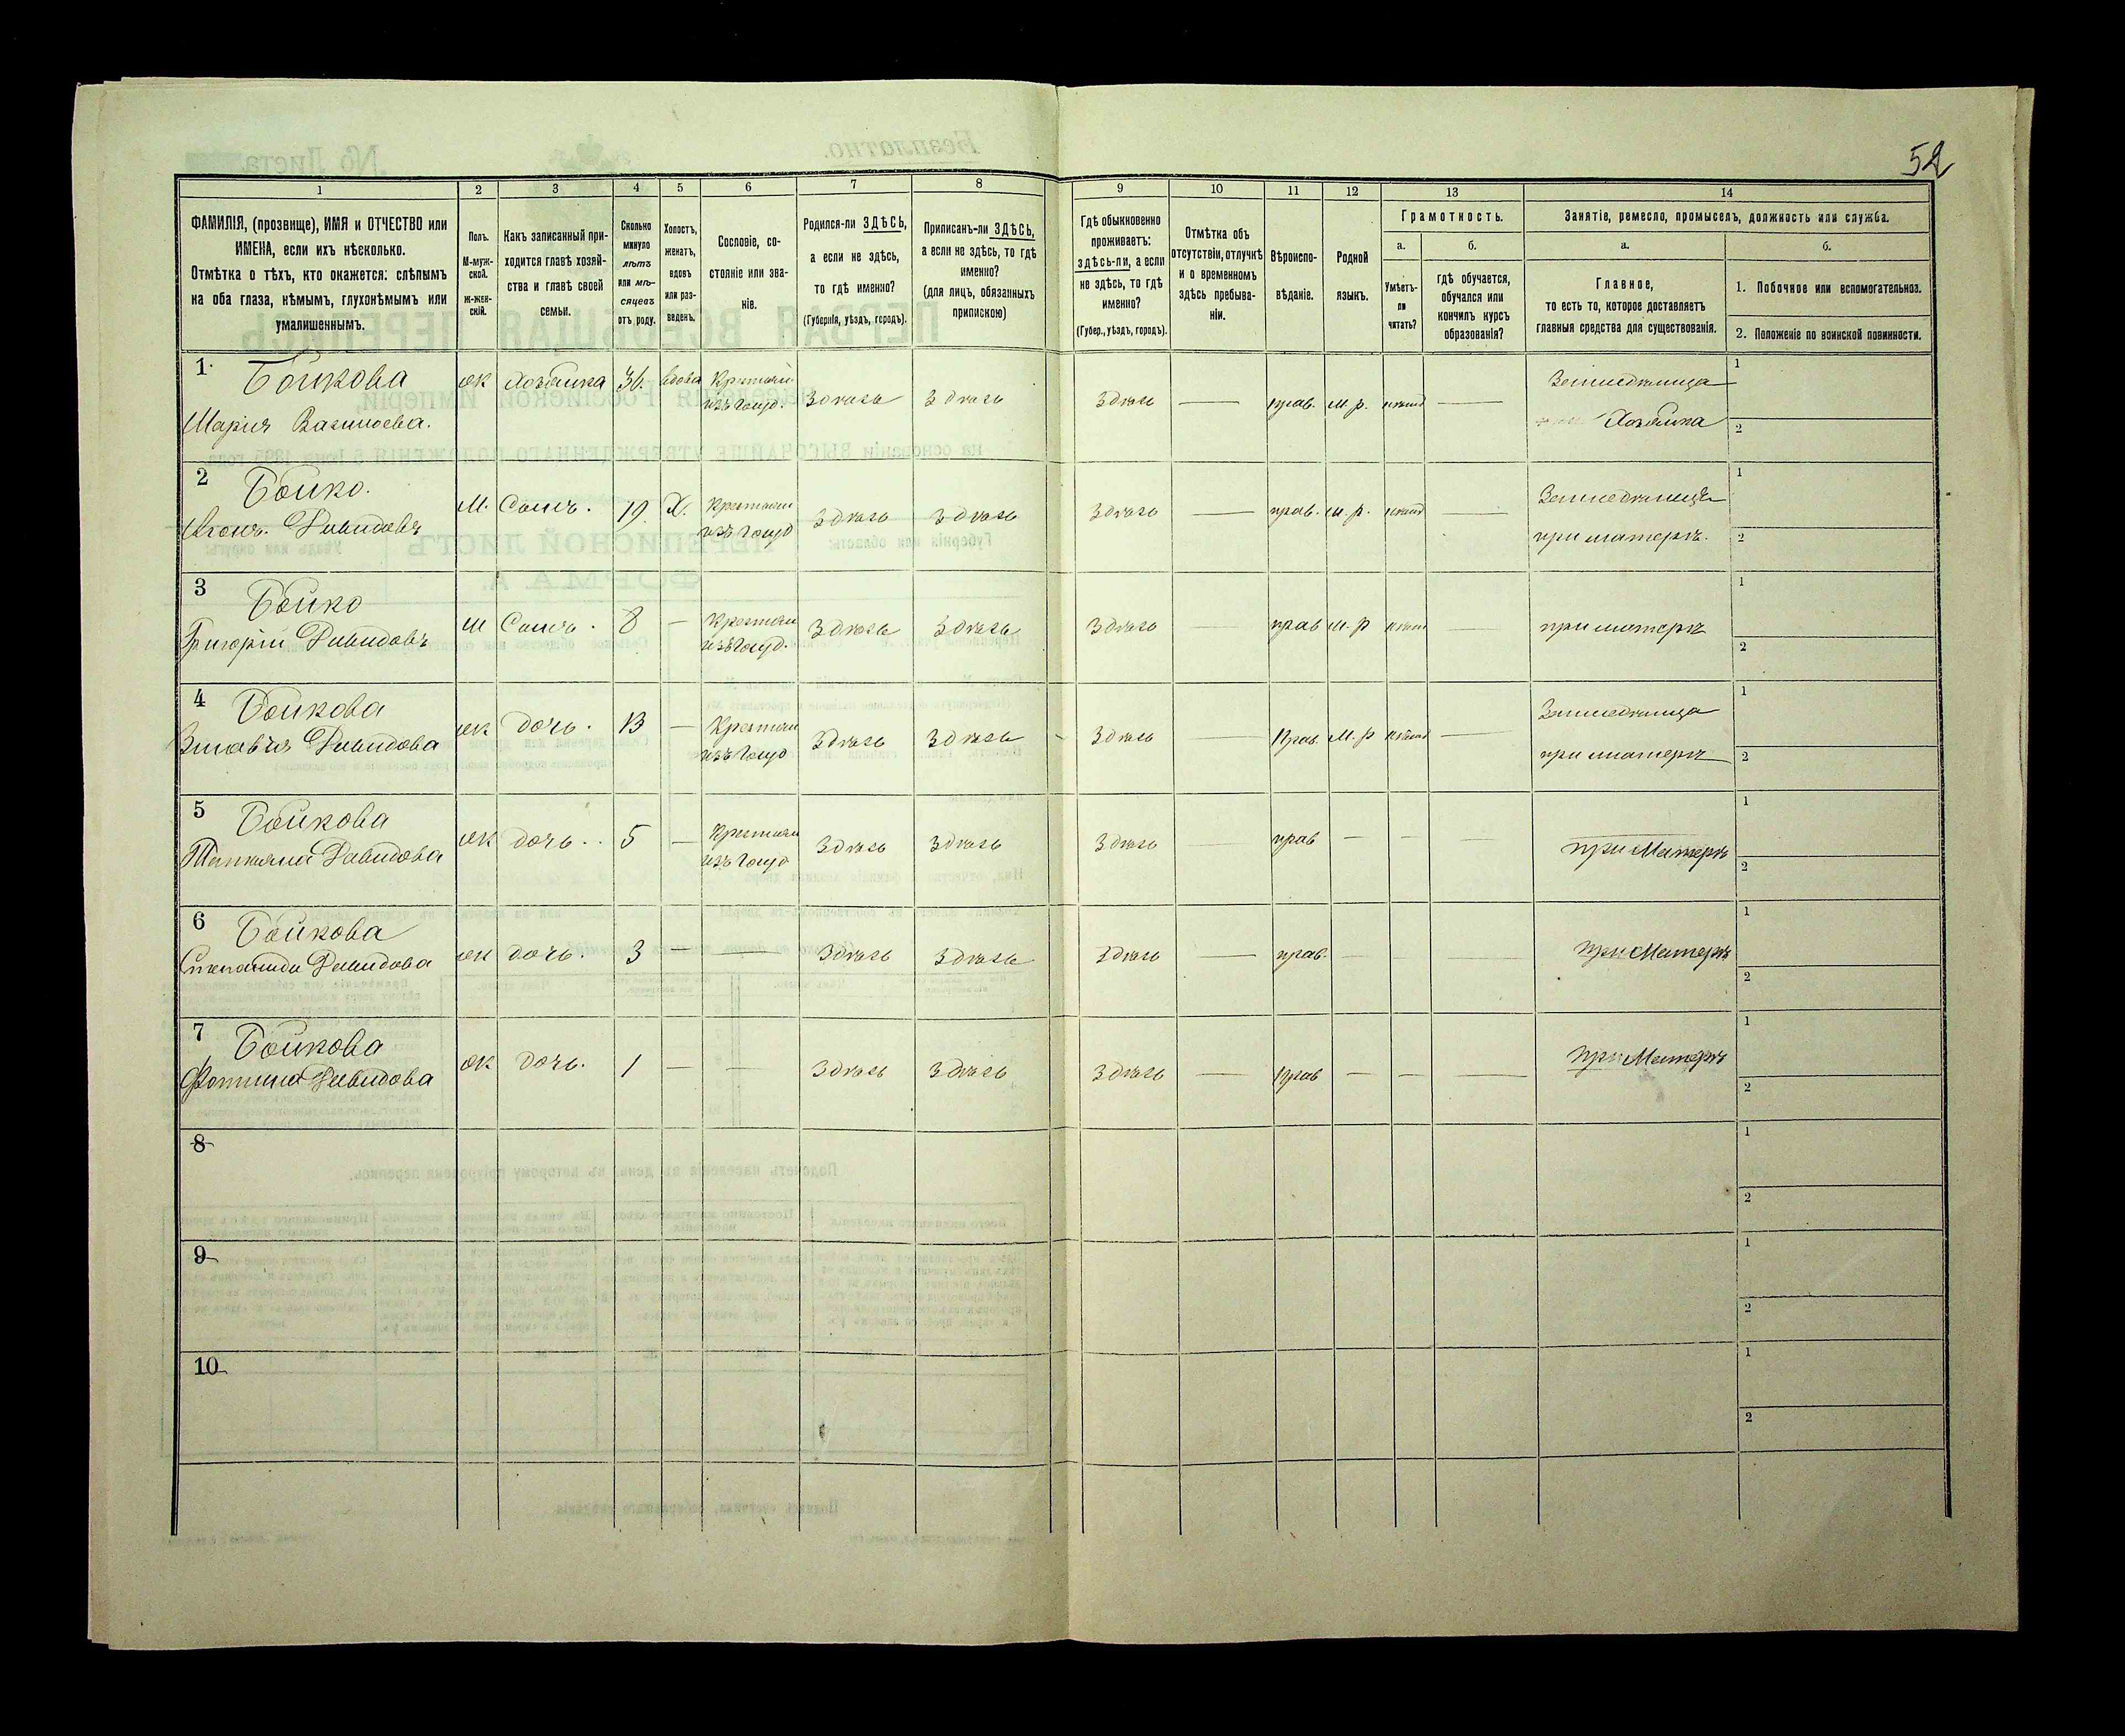 52
1 2 3 4 5 6 7 8 9 10 11 12 13 14
ФАМИЛІЯ, (прозвище), ИМЯ и ОТЧЕСТВО или
ИМЕНА, если ихъ нѣсколько.
Отмѣтка о тѣхъ, кто окажется: слѣпымъ
на оба глаза, нѣмымъ, глухонѣмымъ или
умалишеннымъ.
Полъ.
М-муж-
ской.
Ж-жен-
скій.
Какъ записанный при-
ходится главѣ хозяй-
ства и главѣ своей
семьи.
Сколько
минуло
лѣтъ
или мѣ-
сяцевъ
отъ роду.
Холостъ,
женатъ,
вдовъ
или раз-
веденъ.
Сословіе, со-
стояніе или зва-
ніе.
Родился-ли ЗДѢСЬ,
а если не здѣсь,
то гдѣ именно?
(Губернія, уѣздъ, городъ).
Приписанъ-ли ЗДѢСЬ,
а если не здѣсь, то гдѣ
именно?
(для лицъ, обязанныхъ
припискою)
Гдѣ обыкновенно
проживаетъ:
здѣсь-ли, а если
не здѣсь, то гдѣ
именно?
(Губер., уѣздъ, городъ).
Отмѣтка объ
отсутствіи, отлучкѣ
и о временномъ
здѣсь пребыва-
ніи.
Вѣроиспо-
вѣданіе.
Родной
языкъ.
Грамотность.
а.
Умѣетъ-
ли
читать?
б.
гдѣ обучается,
обучался или
кончилъ курсъ
образованія?
Занятіе, ремесло, промыселъ, должность или служба.
а.
Главное,
то есть то, которое доставляетъ
главныя средства для существованія.
б.
1. Побочное или вспомогательное.
2. Положеніе по воинской повинности.
1 Бойкова ж Хозяйка 36. вдова
Марія Василіева. здѣсь здѣсь здѣсь прав. м. р.
Хозяйка
1
2
2 Бойко. М. Сынъ. 19 Х.
Давидовъ здѣсь здѣсь здѣсь прав. м. р.
при матерѣ.
1
2
3 Бойко м Сынъ. 8 —
Григорій Давидовъ здѣсь здѣсь здѣсь прав м. р при матерѣ
1
2
4 Бойкова ж дочь. 13 —
Давидова здѣсь здѣсь здѣсь Прав. м. р
при матерѣ
1
2
5 Бойкова ж дочь. 5 —
Татьяна Давидова здѣсь здѣсь здѣсь прав — — — при Матерѣ
1
2
6 Бойкова ж дочь. 3 — —
Степанида Давидова здѣсь здѣсь здѣсь — прав. — при Матерѣ
1
2
7 Бойкова ж дочь. 1 — —
Фотина Давидова здѣсь здѣсь здѣсь — прав — — — при Матерѣ
1
2
8
1
2
9
1
2
10
1
2